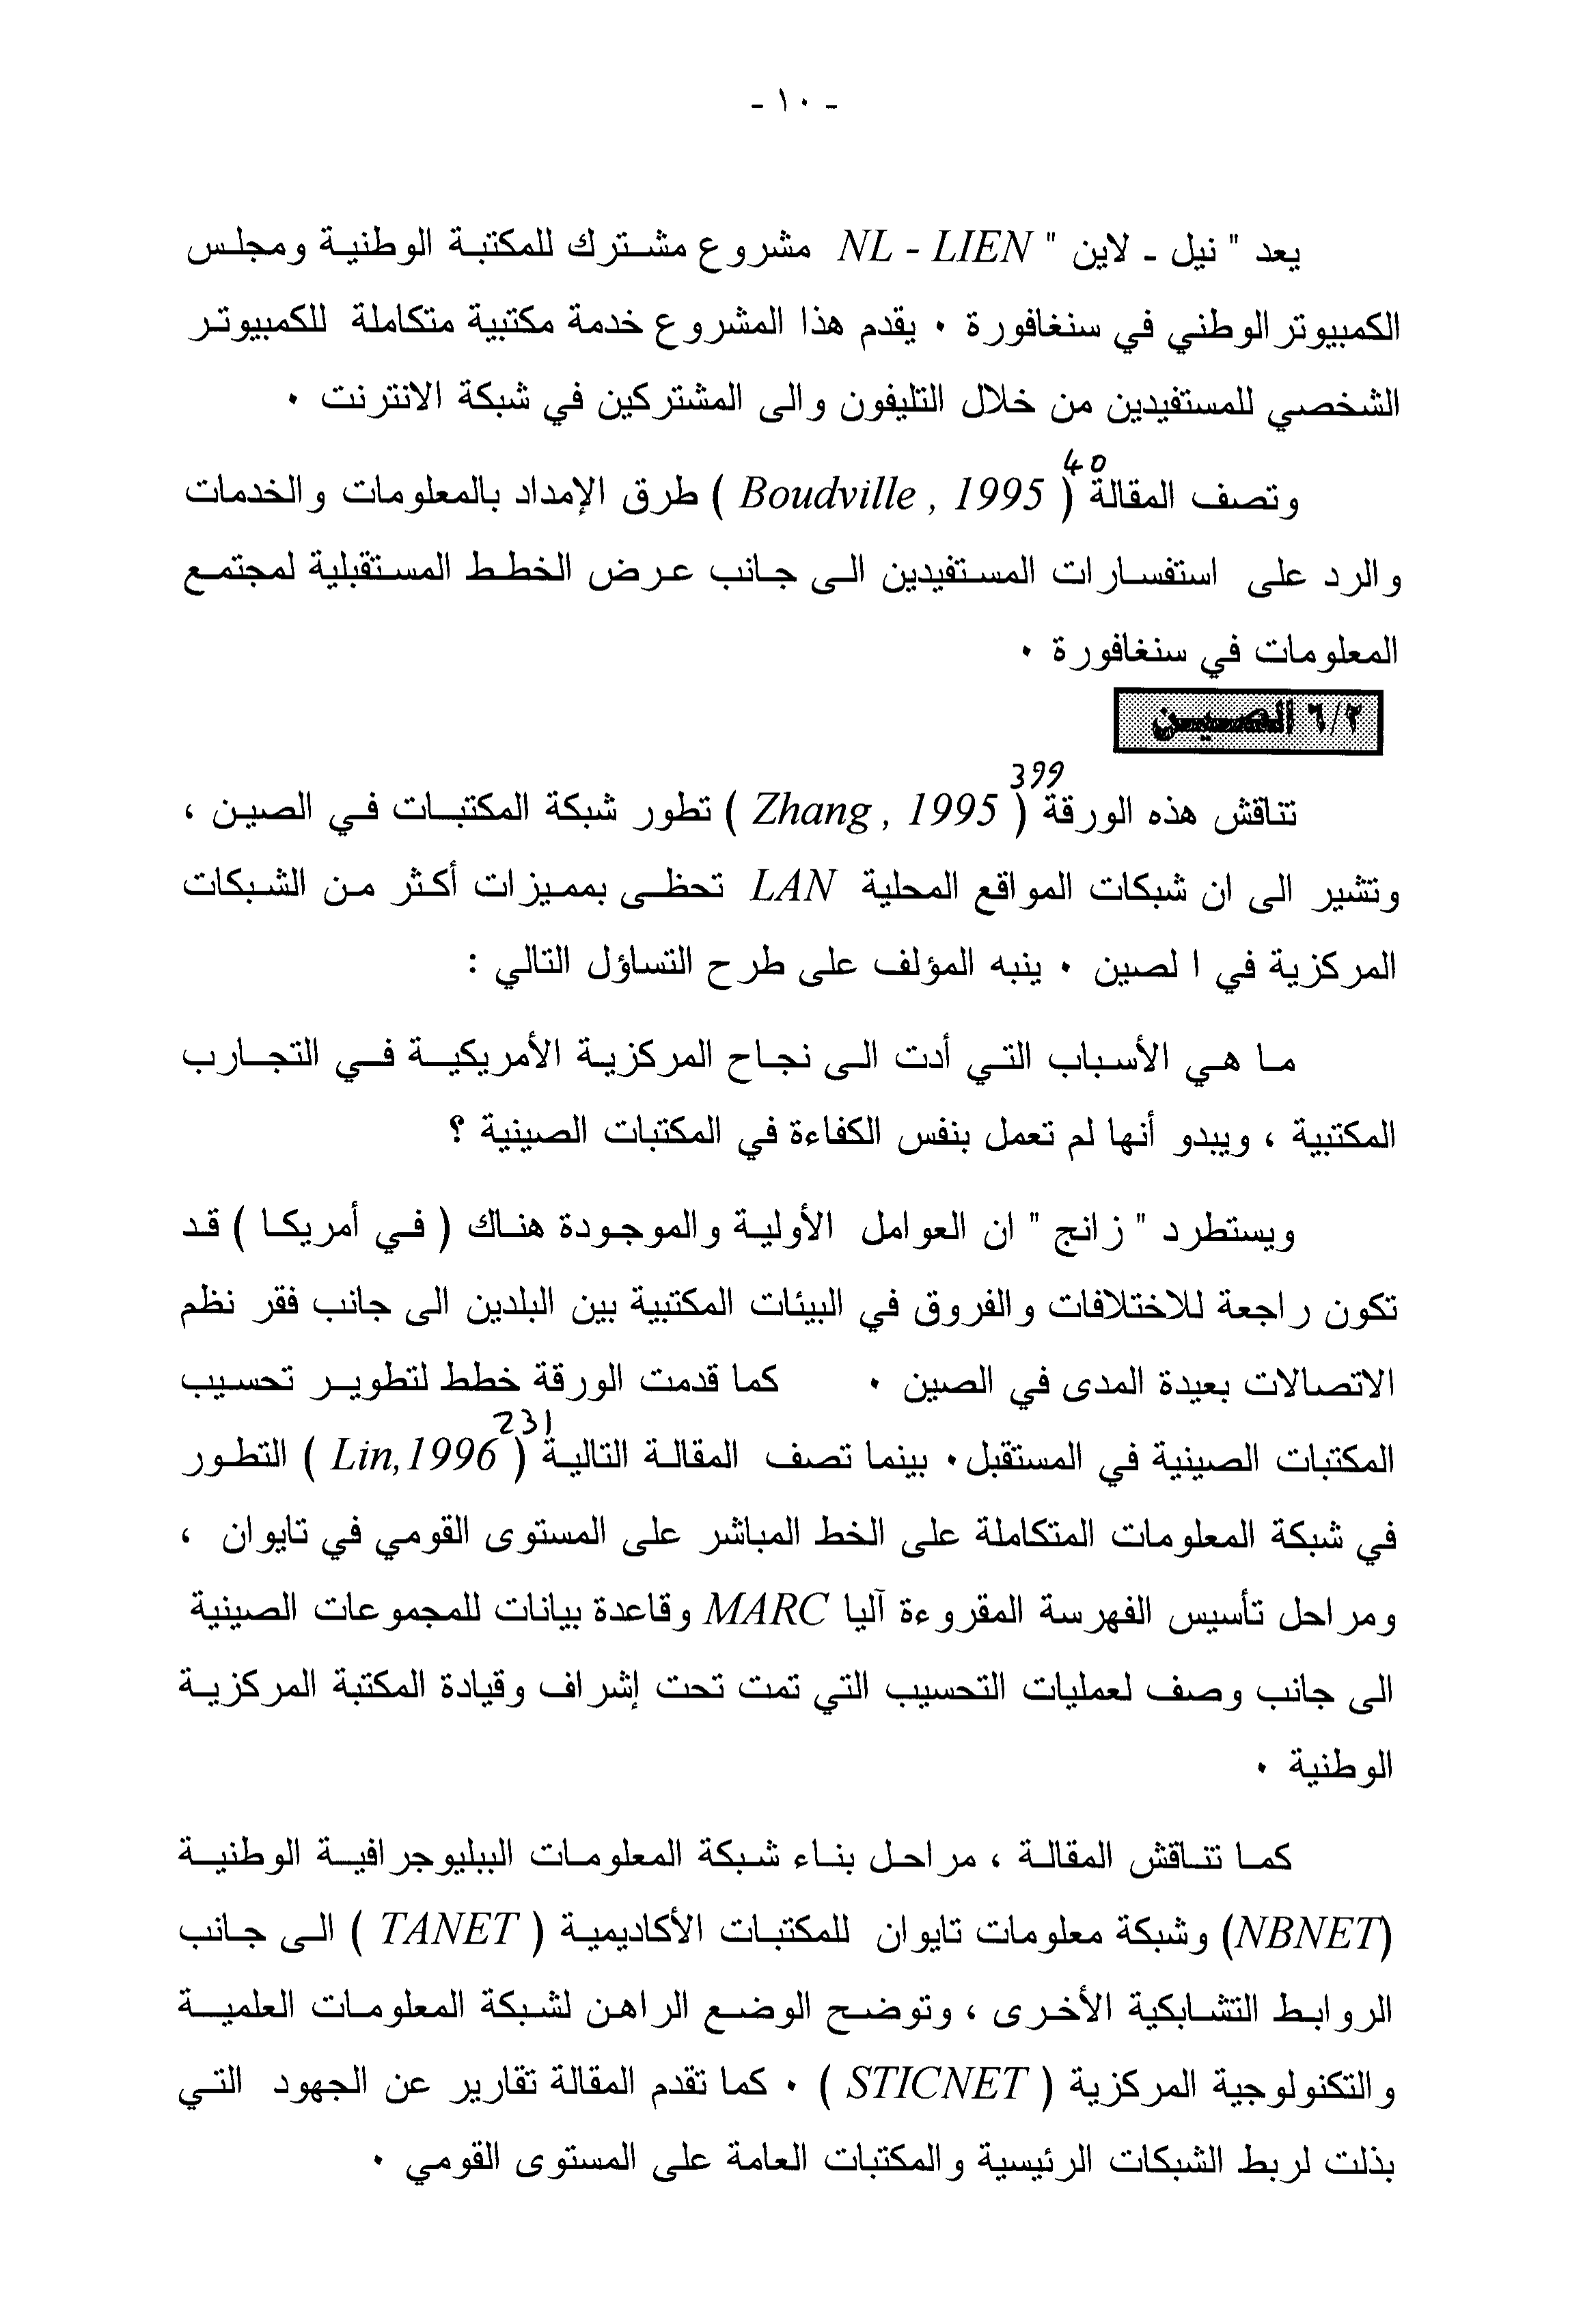 - ١٠ -
يعد " نيل - لاين " NL - LIEN مشروع مشترك للمكتبة الوطنية ومجلس
الكمبيوتر الوطني في سنغافورة ٠ يقدم هذا المشروع خدمة مكتبية متكاملة للكمبيوتر
الشخصي للمستفيدين من خلال التليفون والى المشتركين في شبكة الانترنت ٠
40
وتصف المقالة ( Boudville , 1995 ) طرق الإمداد بالمعلومات والخدمات
والرد على استفسارات المستفيدين الى جانب عرض الخطط المستقبلية لمجتمع
المعلومات في سنغافورة ٠
٦/٢ الصين
399
تناقش هذه الورقة ( Zhang , 1995 ) تطور شبكة المكتبات في الصين ،
وتشير الى ان شبكات المواقع المحلية LAN تحظى بمميزات أكثر من الشبكات
المركزية في ا لصين ٠ ينبه المؤلف على طرح التساؤل التالي :
ما هي الأسباب التي أدت الى نجاح المركزية الأمريكية في التجارب
المكتبية ، ويبدو أنها لم تعمل بنفس الكفاءة في المكتبات الصينية ؟
ويستطرد " زانج " ان العوامل الأولية والموجودة هناك ( في أمريكا ) قد
تكون راجعة للاختلافات والفروق في البيئات المكتبية بين البلدين الى جانب فقر نظم
الاتصالات بعيدة المدى في الصين ٠ كما قدمت الورقة خطط لتطوير تحسيب
231
المكتبات الصينية في المستقبل٠ بينما تصف المقالة التالية ( Lin,1996 ) التطور
في شبكة المعلومات المتكاملة على الخط المباشر على المستوى القومي في تايوان ،
ومراحل تأسيس الفهرسة المقروءة آليا MARC وقاعدة بيانات للمجموعات الصينية
الى جانب وصف لعمليات التحسيب التي تمت تحت إشراف وقيادة المكتبة المركزية
الوطنية ٠
كما تناقش المقالة ، مراحل بناء شبكة المعلومات الببليوجرافية الوطنية
(NBNET) وشبكة معلومات تايوان للمكتبات الأكاديمية ( TANET ) الى جانب
الروابط التشابكية الأخرى ، وتوضح الوضع الراهن لشبكة المعلومات العلمية
والتكنولوجية المركزية ( STICNET ) ٠ كما تقدم المقالة تقارير عن الجهود التي
بذلت لربط الشبكات الرئيسية والمكتبات العامة على المستوى القومي ٠